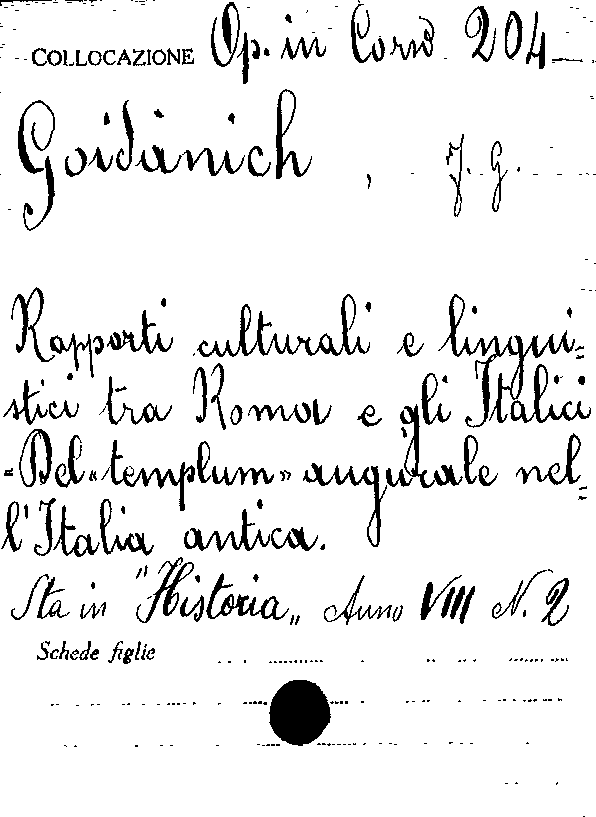 COLLOCAZIONE Op. in Corso 204
Goidànich, J. G.
Rapporti culturali e lingui=
stici tra Roma e gli Italici
=Del «templum» augurale nel=
l'Italia antica.
Sta in "Historia„ Anno VIII N. 2
Schede figlie